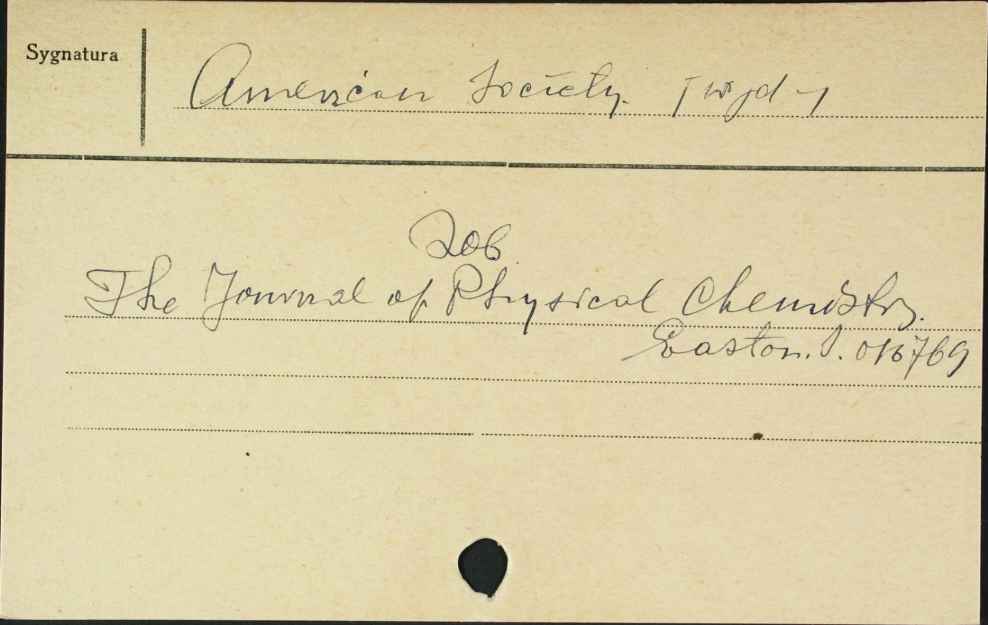 Sygnatura
American Society. [wyd-]
Zob.
The Journal of Physical Chemistry.
Easton. P. 016769